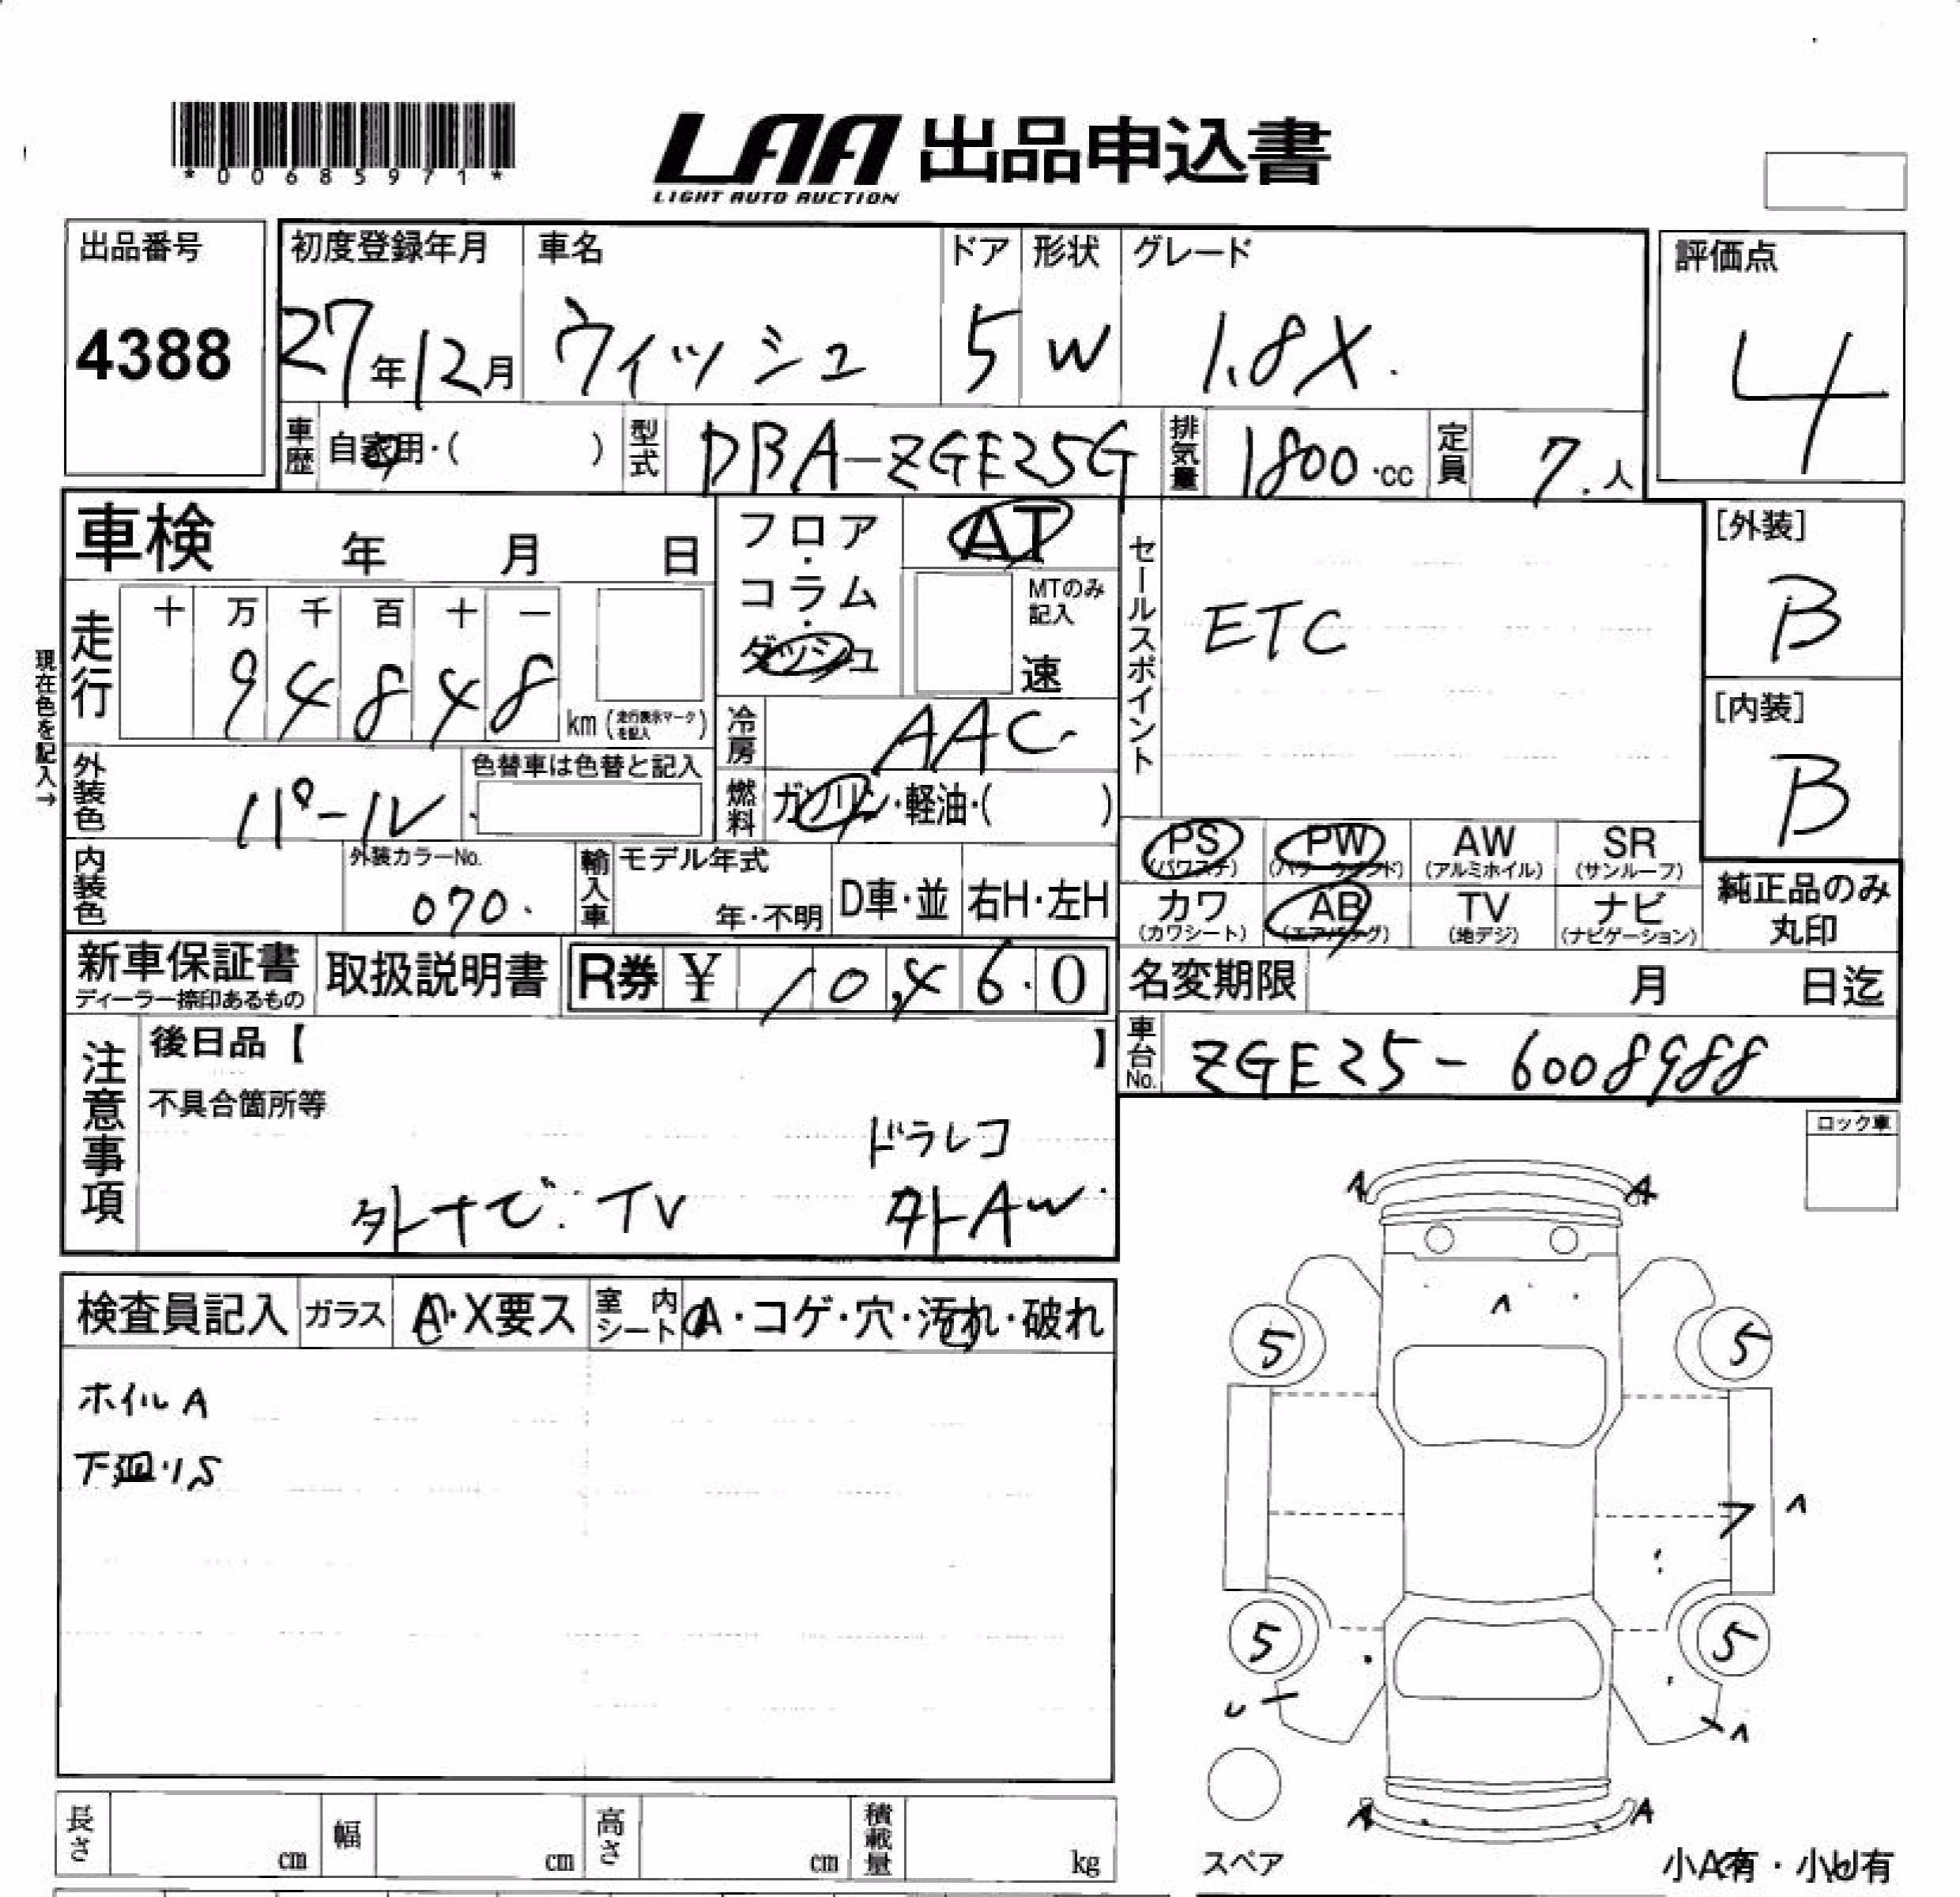 *00685971*
LAA 出品申込書
LIGHT AUTO AUCTION
出品番号 初度登録年月 車名 ドア 形状 グレード 評価点
4388 27年12月 ウィッシュ 5 W 1.8X. 4
車歴 自家用・( ) 型式 DBA-ZGE25G 排気量 1800・cc 定員 7.人
車検 年 月 日 フロア・コラム・ダッシュ AT
MTのみ記入 速
セールスポイント ETC
[外装] B
[内装] B
現在色を記入→
走行 十 万 千 百 十 一
9 4 8 4 8 km (走行表示マークを記入)
冷房 AAC
外装色 パール 色替車は色替と記入
燃料 ガソリン・軽油・( )
PS (パワステ) PW (パワーウインド) AW (アルミホイル) SR (サンルーフ)
内装色 外装カラーNo. 070. 輸入車 モデル年式 年・不明 D車・並 右H・左H
カワ (カワシート) AB (エアバッグ) TV (地デジ) ナビ (ナビゲーション)
純正品のみ丸印
新車保証書 ディーラー捺印あるもの 取扱説明書 R券 ¥ 10,460
名変期限 月 日迄
車台No. ZGE25-6008988
注意事項 後日品【 】
不具合箇所等
ドラレコ
外ナビ. TV 外AW
ロック車
検査員記入 ガラス A・X要ス 室内シート A・コゲ・穴・汚れ・破れ
ホイルA
A A
^
5 5
7 ^
5 5
^
A A
長さ cm 幅 cm 高さ cm 積載量 kg
スペア 小A有・小U有